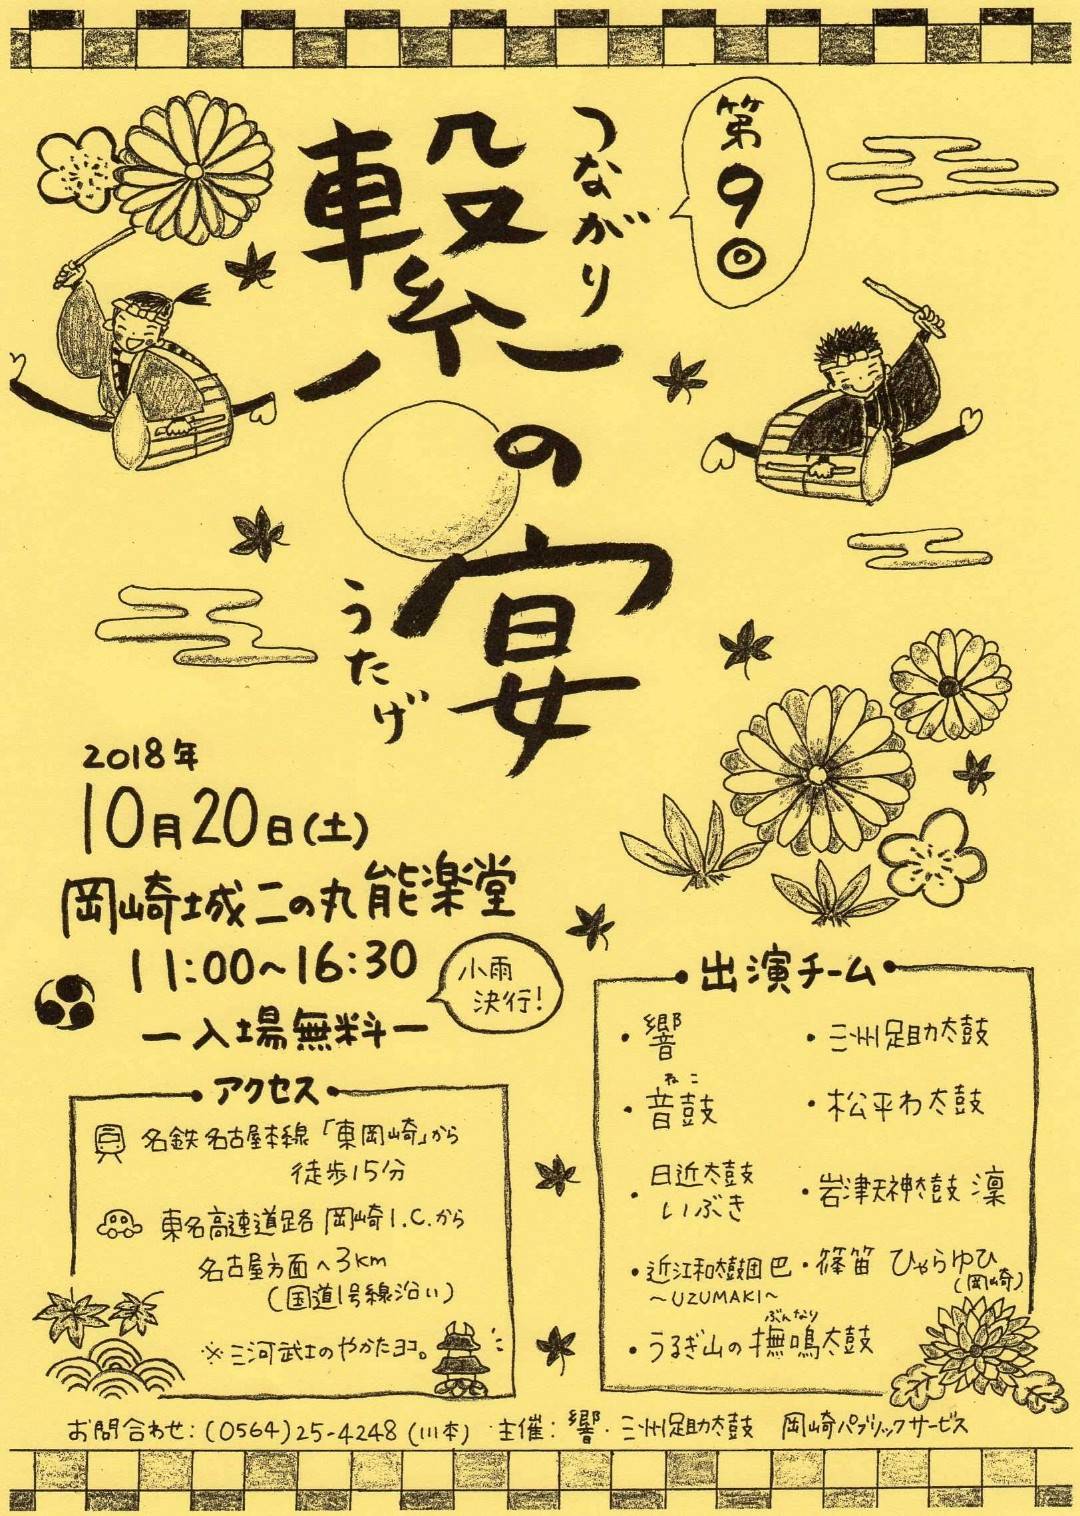 第9回
つながり
繋の宴
うたげ
2018年
10月20日(土)
岡崎城二の丸能楽堂
11:00~16:30
小雨
決行!
ー入場無料ー
アクセス
名鉄名古屋本線「東岡崎」から
徒歩15分
東名高速道路 岡崎I.C.から
名古屋方面へ3km
(国道1号線沿い)
※三河武士のやかたヨコ。
出演チーム
・響
ねこ
・音鼓
・日近太鼓
いぶき
・近江和太鼓団 巴
~UZUMAKI~
ぶんなり
・うるぎ山の撫鳴太鼓
・三州足助太鼓
・松平わ太鼓
・岩津天神太鼓 凜
・篠笛 ひゃらゆひ
(岡崎)
お問合わせ:(0564)25-4248(川本) 主催:響・三州足助太鼓 岡崎パブリックサービス